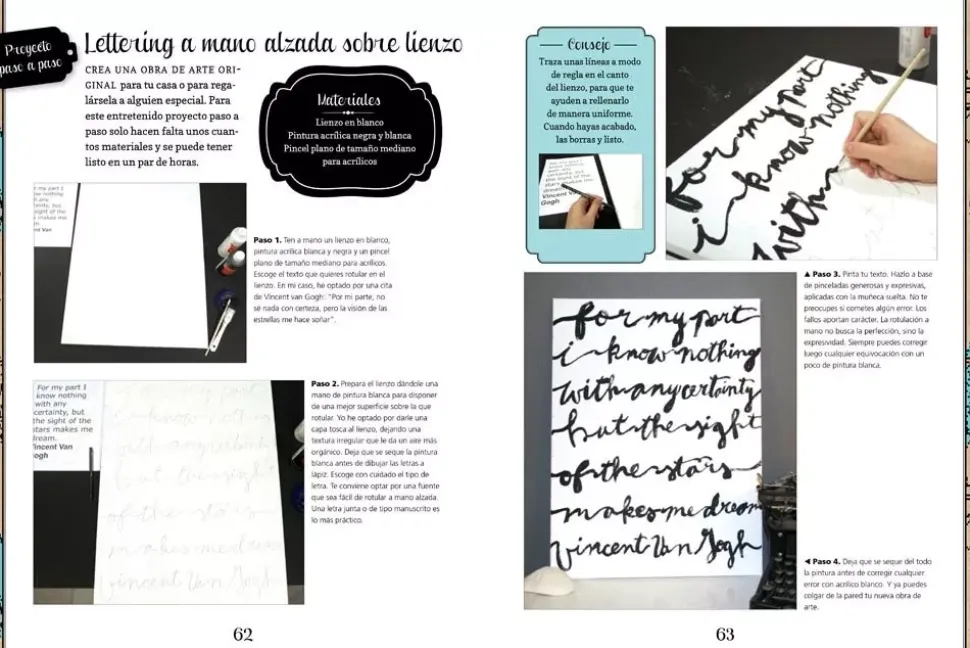 Proyecto
paso a paso
Lettering a mano alzada sobre lienzo
CREA UNA OBRA DE ARTE ORI-
GINAL para tu casa o para rega-
lársela a alguien especial. Para
este entretenido proyecto paso a
paso solo hacen falta unos cuan-
tos materiales y se puede tener
listo en un par de horas.
Materiales
Lienzo en blanco
Pintura acrílica negra y blanca
Pincel plano de tamaño mediano
para acrílicos
my part I
know nothing
with any
certainty, but
the sight of the
makes me
Van
Paso 1. Ten a mano un lienzo en blanco,
pintura acrílica blanca y negra y un pincel
plano de tamaño mediano para acrílicos.
Escoge el texto que quieres rotular en el
lienzo. En mi caso, he optado por una cita
de Vincent van Gogh: "Por mi parte, no
sé nada con certeza, pero la visión de las
estrellas me hace soñar".
For my part I
know nothing
with any
certainty, but
the sight of the
stars makes me
dream.
Vincent Van
ogh
for my part
i know nothing
with any certainty
but the sight
of the stars
makes me dream
vincent Van Gogh
Paso 2. Prepara el lienzo dándole una
mano de pintura blanca para disponer
de una mejor superficie sobre la que
rotular. Yo he optado por darle una
capa tosca al lienzo, dejando una
textura irregular que le da un aire más
orgánico. Deja que se seque la pintura
blanca antes de dibujar las letras a
lápiz. Escoge con cuidado el tipo de
letra. Te conviene optar por una fuente
que sea fácil de rotular a mano alzada.
Una letra junta o de tipo manuscrito es
lo más práctico.
62
Consejo
Traza unas líneas a modo
de regla en el canto
del lienzo, para que te
ayuden a rellenarlo
de manera uniforme.
Cuando hayas acabado,
las borras y listo.
For my part I
know nothing
with any
certainty, but
the sight of the
stars makes me
dream
Vincent Van
Gogh
for my part
i know nothing
with
▲ Paso 3. Pinta tu texto. Hazlo a base
de pinceladas generosas y expresivas,
aplicadas con la muñeca suelta. No te
preocupes si cometes algún error. Los
fallos aportan carácter. La rotulación a
mano no busca la perfección, sino la
expresividad. Siempre puedes corregir
luego cualquier equivocación con un
poco de pintura blanca.
for my part
i know nothing
with any certainty
but the sight
of the stars
makes me dream
vincent Van Gogh
◀ Paso 4. Deja que se seque del todo
la pintura antes de corregir cualquier
error con acrílico blanco. Y ya puedes
colgar de la pared tu nueva obra de
arte.
63